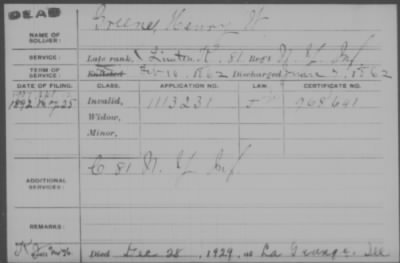 DEAD
NAME OF SOLDIER: Greene, Henry W
SERVICE: Late rank, Lieuten. K, 81 Reg't N. Y. Inf
TERM OF SERVICE: Enlisted Feb 18, 1862 Discharged 7, 1862
DATE OF FILING. CLASS. APPLICATION NO. LAW. CERTIFICATE NO.
1892 25 Invalid, 1113231 968641
Widow,
Minor,
ADDITIONAL SERVICES: C 81 N. Y. Inf
REMARKS:
Died Dec. 28, 1929, at La Grange, Ill